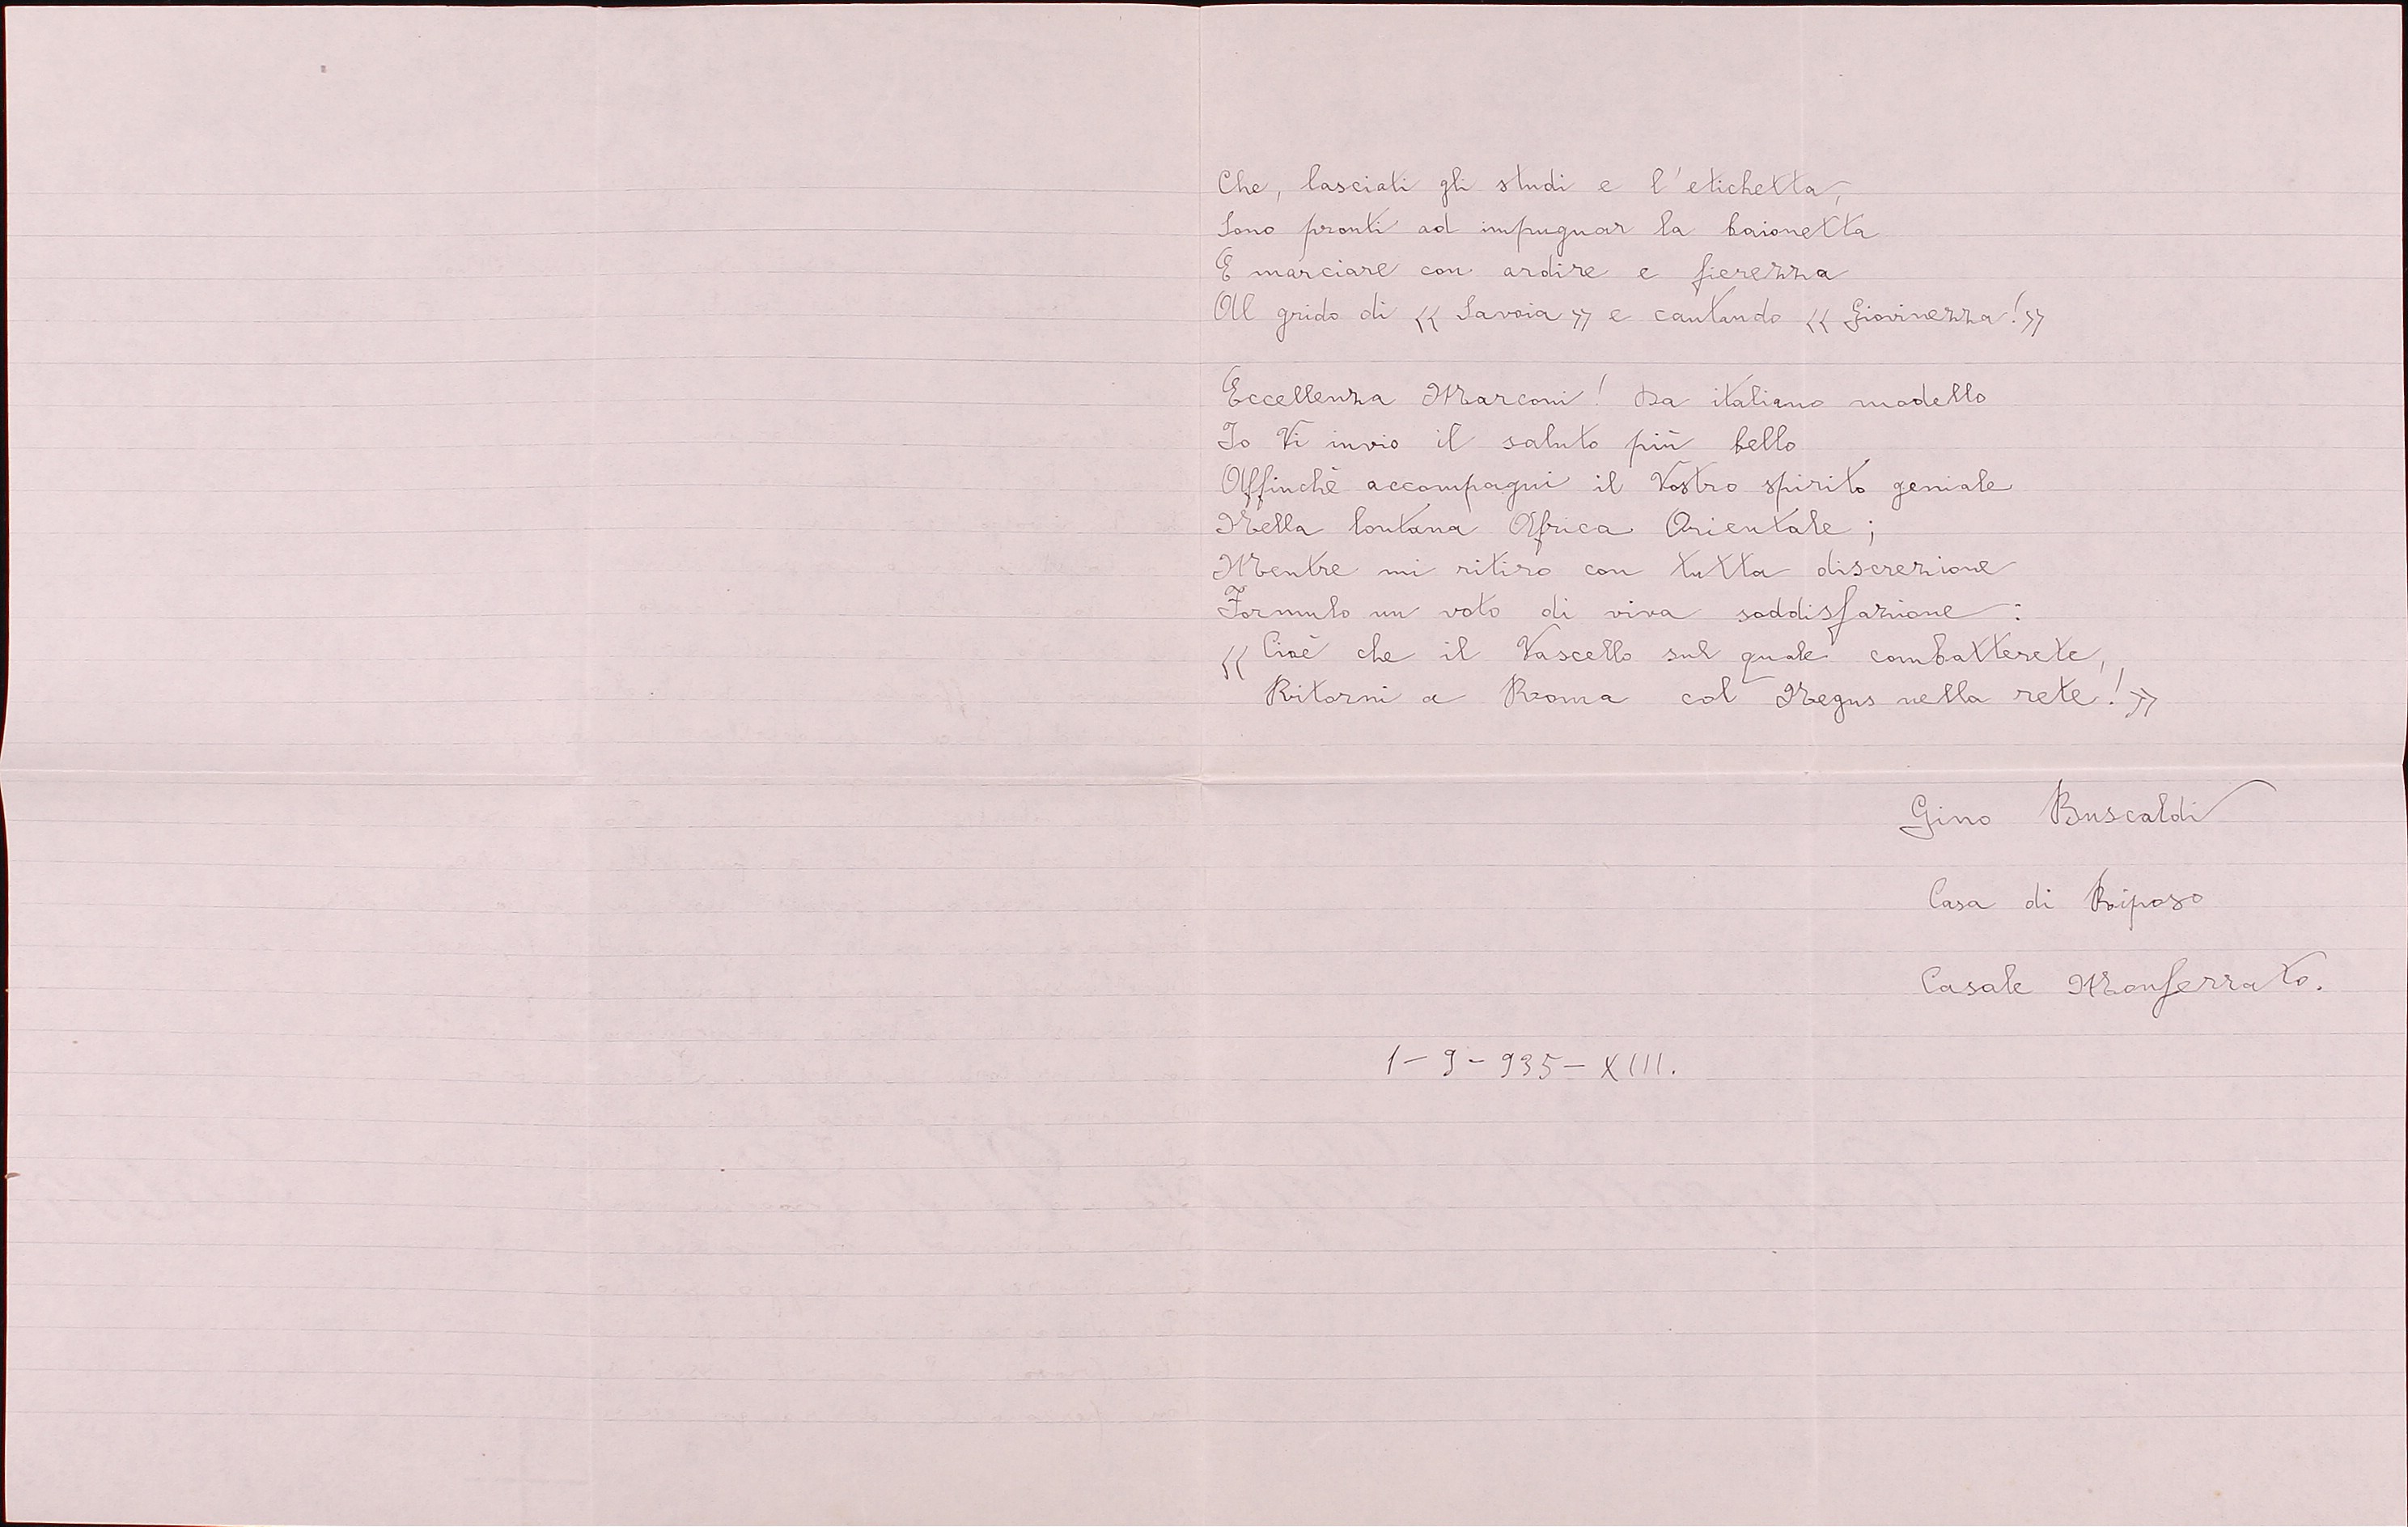 Che, lasciati gli studi e l'etichetta,
Sono pronti ad impugnar la baionetta
E marciare con ardire e fierezza
Al grido di « Savoia » e cantando « Giovinezza! »
Eccellenza Marconi! Da italiano modello
Io Vi invio il saluto più bello
Affinchè accompagni il Vostro spirito geniale
Nella lontana Africa Orientale;
Mentre mi ritiro con tutta discrezione
Formulo un voto di viva soddisfazione:
« Cioè che il Vascello sul quale combatterete,
Ritorni a Roma col Negus nella rete! »
Gino Buscaldi
Casa di Riposo
Casale Monferrato.
1-9-935-XIII.